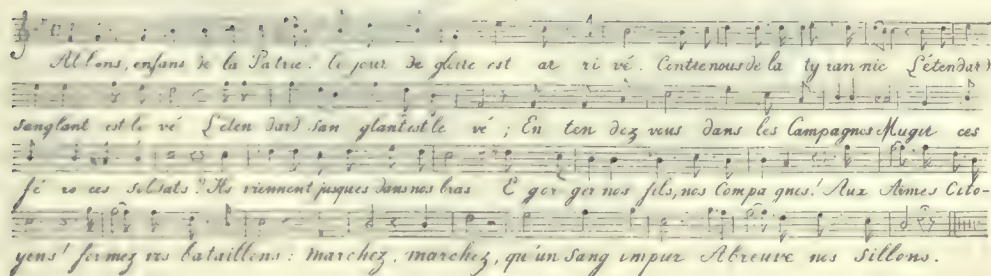 Allons, enfans de la Patrie. le jour de gloire est ar ri vé. Contre nous de la ty ran nie L'étendard
sanglant est le vé L'éten dard san glant est le vé ; En ten dez vous dans les Campagnes Mugir ces
fé ro ces soldats ? Ils viennent jusques dans nos bras E gor ger nos fils, nos Compa gnes ! Aux Armes Cito-
yens ! formez vos bataillons : marchez, marchez, qu'un Sang impur Abreuve nos Sillons.